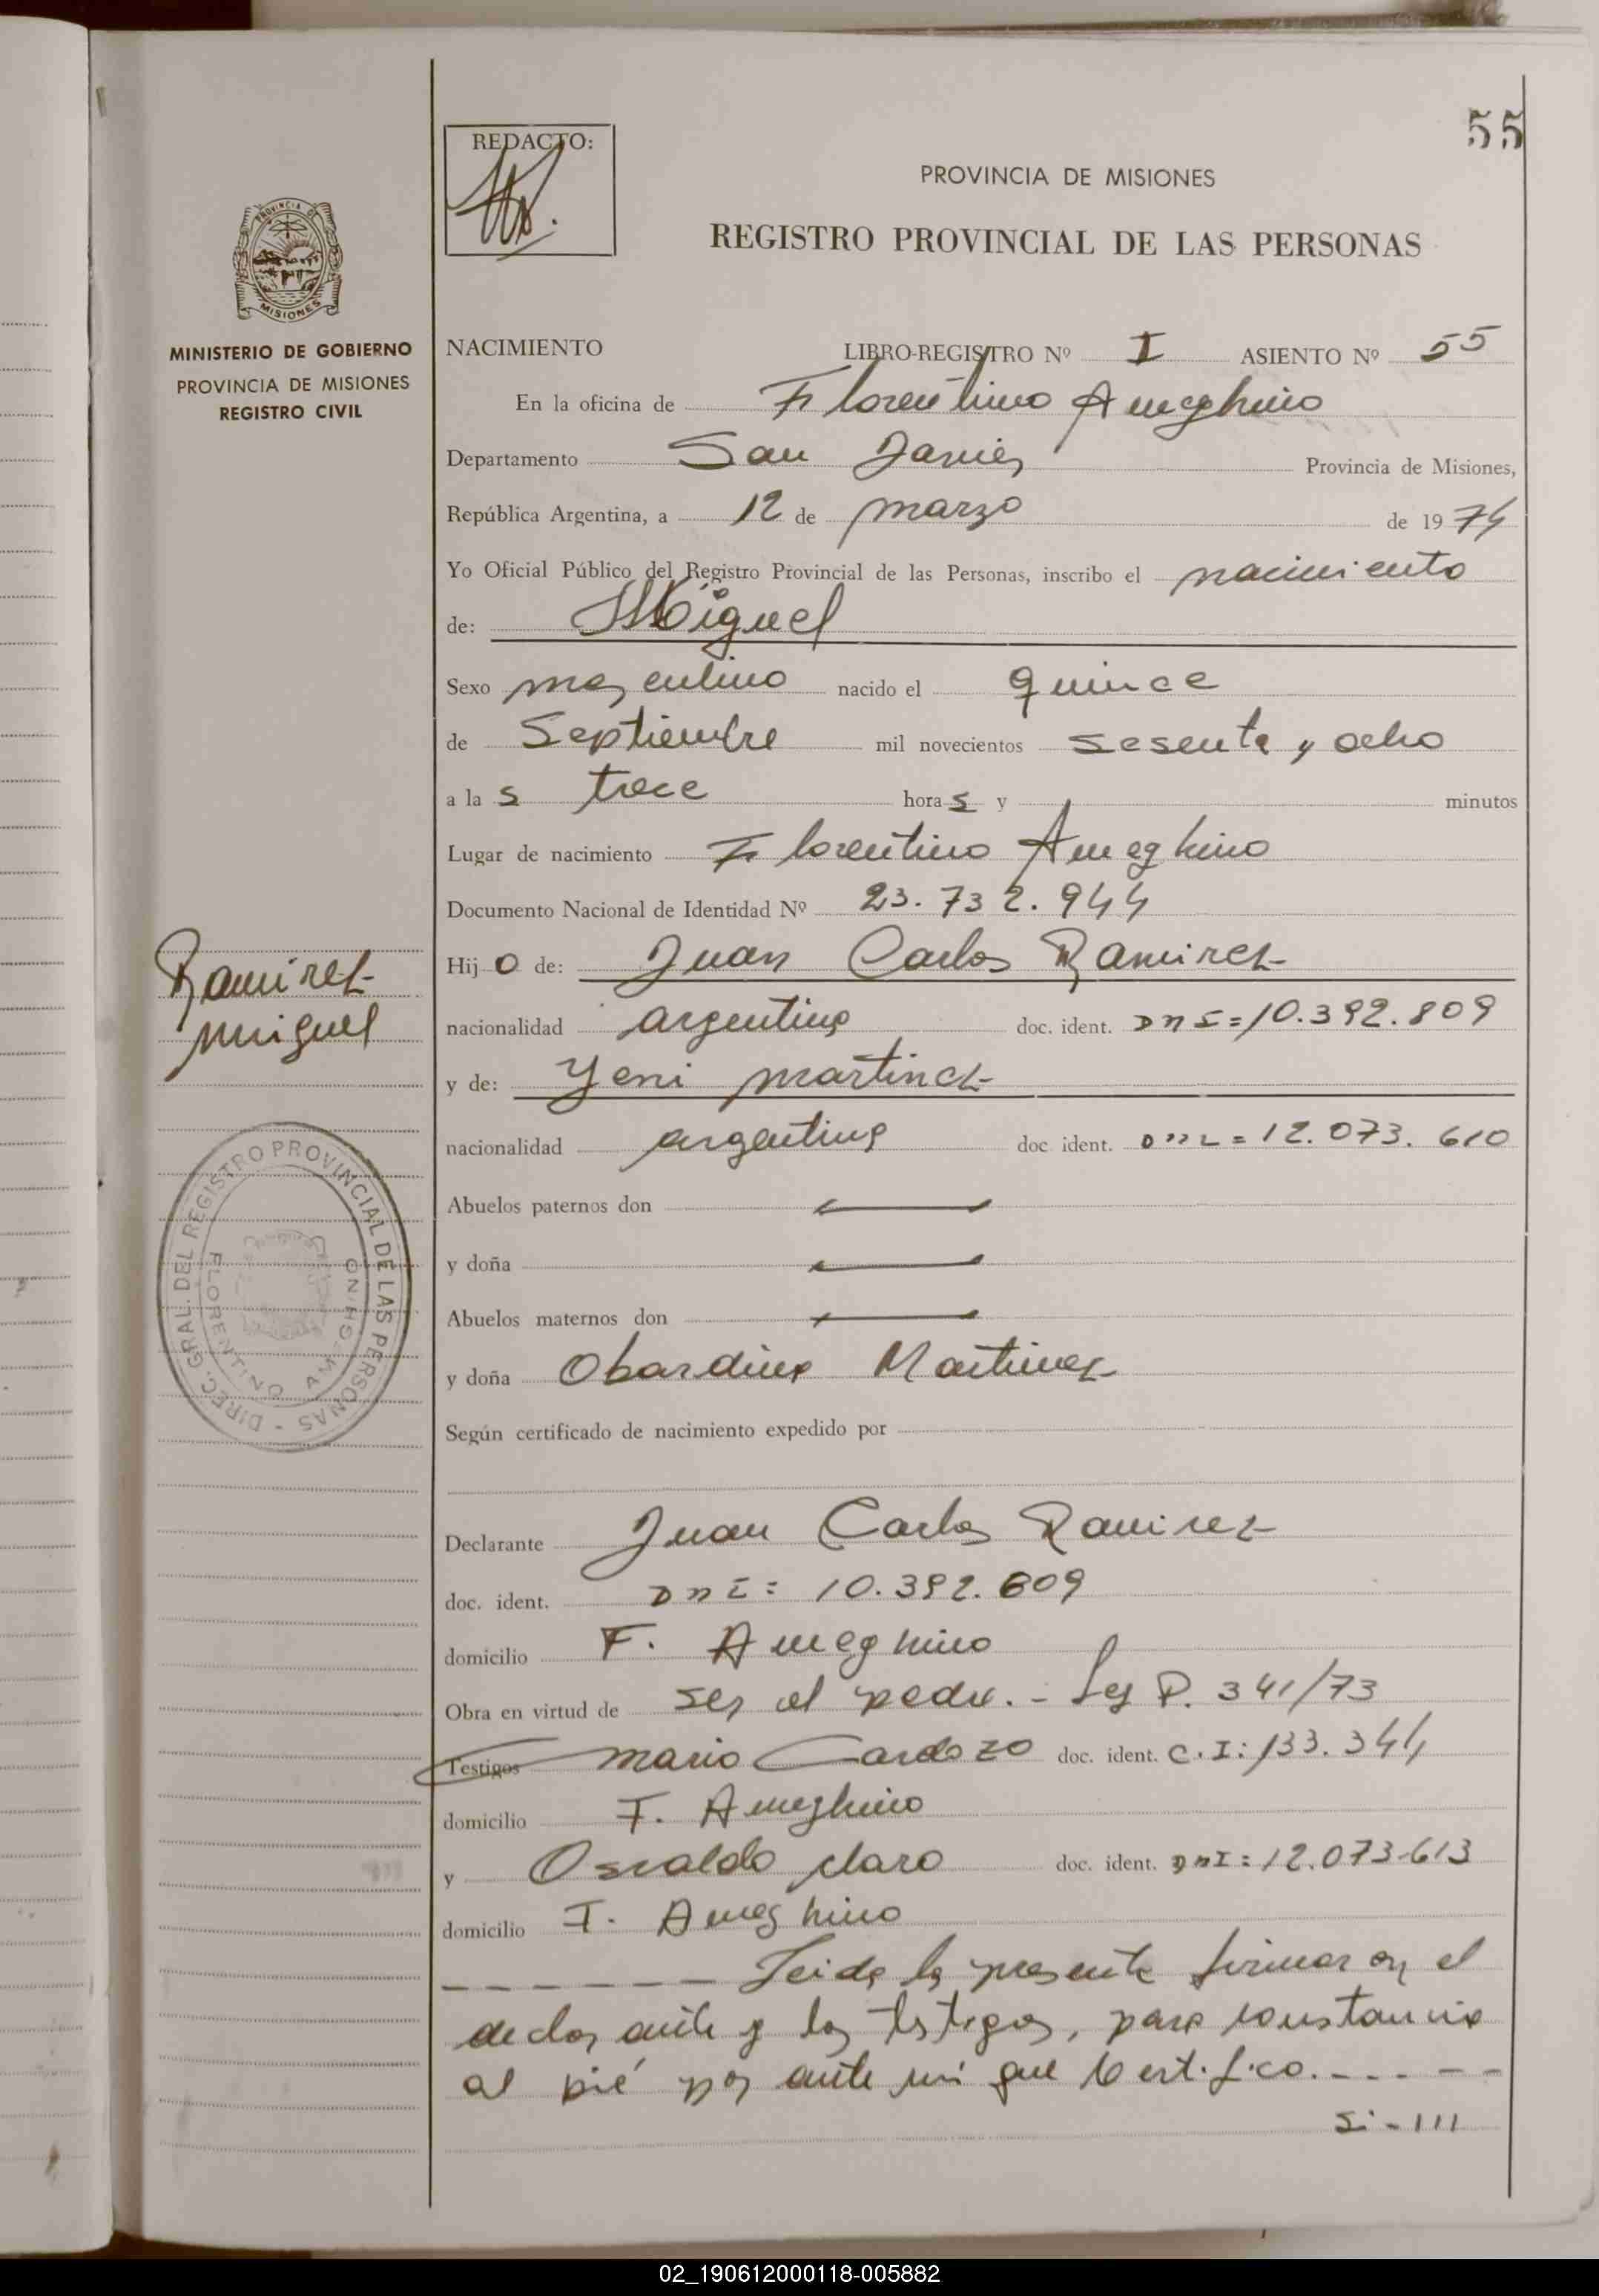 55
REDACTO:
PROVINCIA DE MISIONES
REGISTRO PROVINCIAL DE LAS PERSONAS
PROVINCIA DE MISIONES
MINISTERIO DE GOBIERNO
PROVINCIA DE MISIONES
REGISTRO CIVIL
NACIMIENTO LIBRO-REGISTRO Nº I ASIENTO Nº 55
En la oficina de Florentino Ameghino
Departamento San Javier Provincia de Misiones,
República Argentina, a 12 de marzo de 1974
Yo Oficial Público del Registro Provincial de las Personas, inscribo el nacimiento
de: Miguel
Sexo masculino nacido el quince
de Septiembre mil novecientos sesenta y ocho
a la s trece hora s y minutos
Lugar de nacimiento Florentino Ameghino
Documento Nacional de Identidad Nº 23.732.944
Hij o de: Juan Carlos Ramirez
Ramirez
Miguel
nacionalidad argentina doc. ident. DNI=10.392.809
y de: Yeni Martinez
nacionalidad argentina doc ident. DNI=12.073.610
Abuelos paternos don
y doña
Abuelos maternos don
y doña Obardina Martinez
DIREC. GRAL. DEL REGISTRO PROVINCIAL DE LAS PERSONAS -
FLORENTINO AMEGHINO
Según certificado de nacimiento expedido por
Declarante Juan Carlos Ramirez
doc. ident. DNI: 10.392.809
domicilio F. Ameghino
Obra en virtud de ser el padre.- Ley P. 341/73
Testigos Mario Cardozo doc. ident. C.I: 133.344
domicilio F. Ameghino
y Osvaldo Claro doc. ident. DNI: 12.073.613
domicilio F. Ameghino
------ Leida la presente firmaron el
declarante y los testigos, para constancia
al pié por ante mi que Certifico.-----
Si-111
02_190612000118-005882